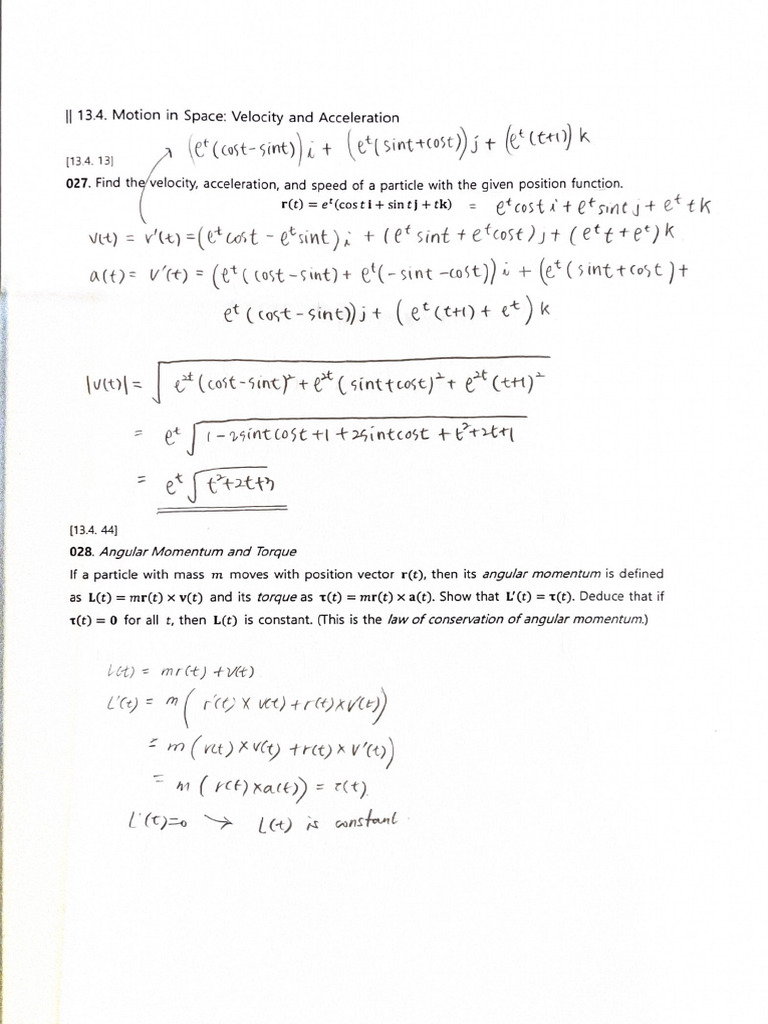 || 13.4. Motion in Space: Velocity and Acceleration
(e^t(cost-sint))i + (e^t(sint+cost))j + (e^t(t+1))k
[13.4. 13]
027. Find the velocity, acceleration, and speed of a particle with the given position function.
r(t) = e^t(cos t i + sin t j + tk) = e^t cost i + e^t sint j + e^t tk
v(t) = r'(t) = (e^t cost - e^t sint)i + (e^t sint + e^t cost)j + (e^t t + e^t)k
a(t) = v'(t) = (e^t(cost-sint) + e^t(-sint-cost))i + (e^t(sint+cost)+
e^t(cost-sint))j + (e^t(t+1) + e^t)k
|v(t)| = √(e^2t(cost-sint)^2 + e^2t(sint+cost)^2 + e^2t(t+1)^2)
= e^t √(1-2sintcost+1+2sintcost+t^2+2t+1)
= e^t √(t^2+2t+3)
[13.4. 44]
028. Angular Momentum and Torque
If a particle with mass m moves with position vector r(t), then its angular momentum is defined
as L(t) = mr(t) × v(t) and its torque as τ(t) = mr(t) × a(t). Show that L'(t) = τ(t). Deduce that if
τ(t) = 0 for all t, then L(t) is constant. (This is the law of conservation of angular momentum.)
L(t) = mr(t) + v(t)
L'(t) = m(r'(t) × v(t) + r(t) × v'(t))
= m(v(t) × v(t) + r(t) × v'(t))
= m(r(t) × a(t)) = τ(t).
L'(t)=0 → L(t) is constant.